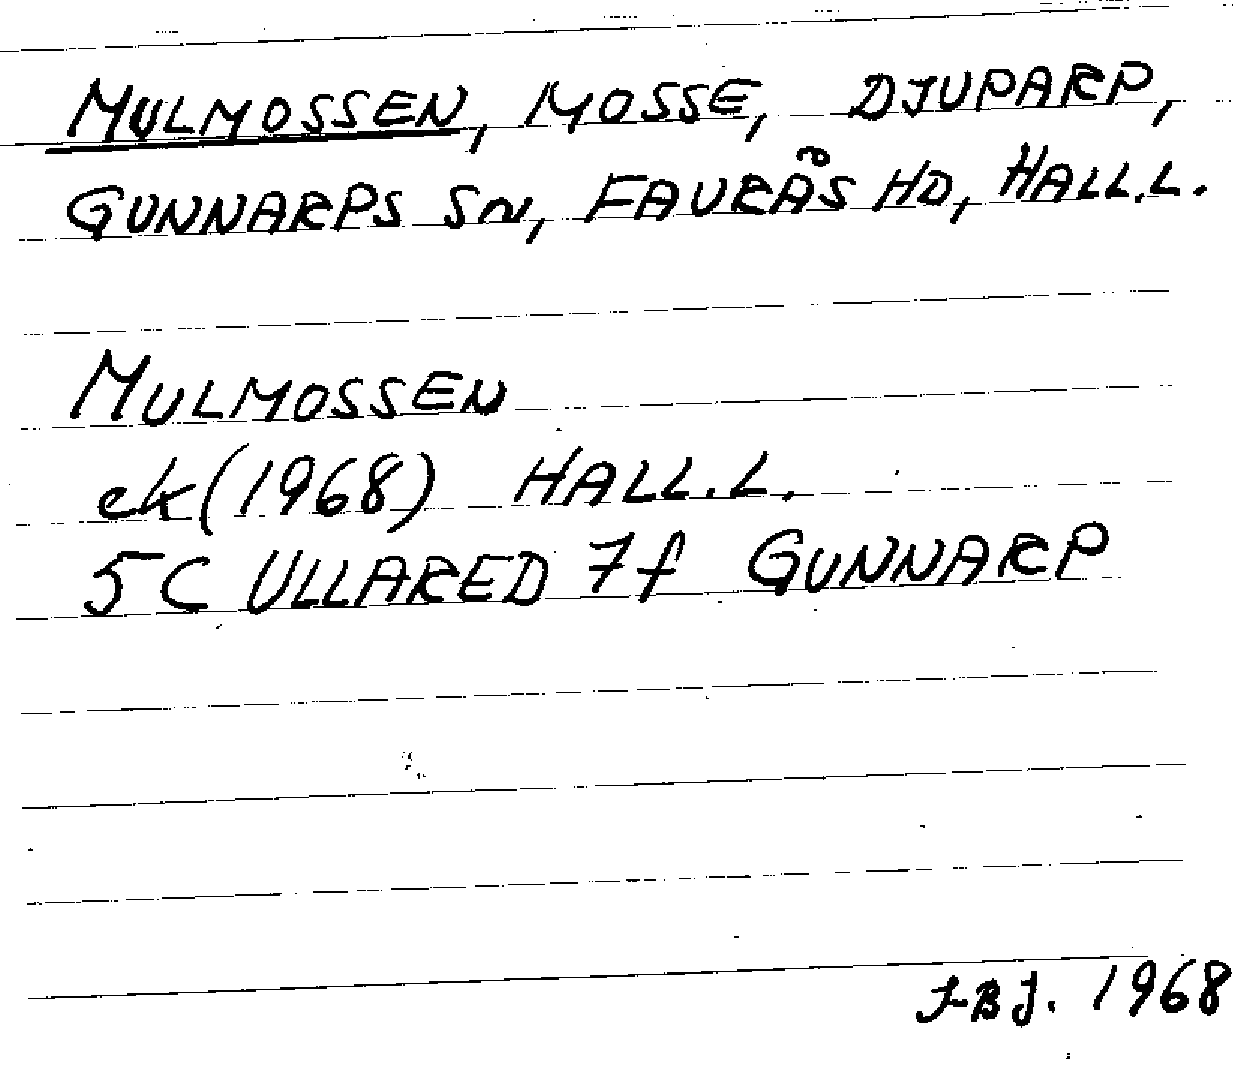 MULMOSSEN, MOSSE, DJUPARP,
GUNNARPS SN, FAURÅS HD, HALL.L.
MULMOSSEN
ek (1968) HALL.L.
5C ULLARED 7f GUNNARP
1968